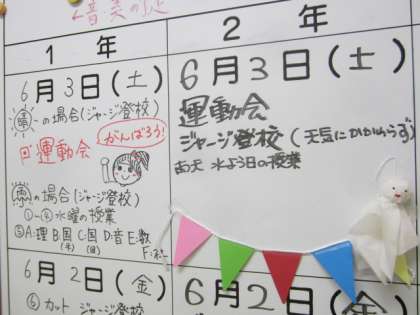 1年
2年
6月3日(土)
晴の場合(ジャージ登校)
運動会
がんばろう!
の場合(ジャージ登校)
①~④水曜の授業
⑤A:理 B:国 C:国 D:音 E:数
F:
6月2日(金)
⑥カット ジャージ登校
6月3日(土)
運動会
ジャージ登校(天気にかかわらず)
雨天 水よう日の授業
6月2日(金)